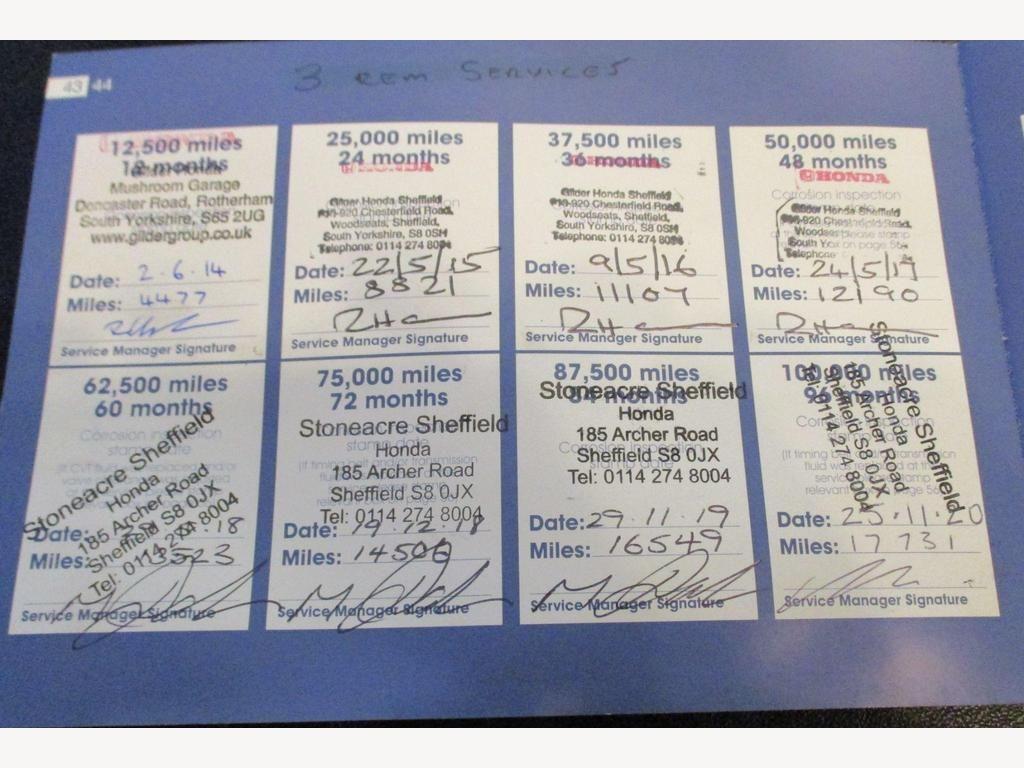 43 44
3 REM SERVICES
12,500 miles
12 months
Mushroom Garage
Doncaster Road, Rotherham
South Yorkshire, S65 2UG
www.gildergroup.co.uk
Date: 2.6.14
Miles: 4477
Service Manager Signature
25,000 miles
24 months
HONDA
Gilder Honda Sheffield
910-920 Chesterfield Road,
Woodseats, Sheffield,
South Yorkshire, S8 0SH
Telephone: 0114 274 8004
Date: 22/5/15
Miles: 8821
Service Manager Signature
37,500 miles
36 months
HONDA
Gilder Honda Sheffield
910-920 Chesterfield Road,
Woodseats, Sheffield,
South Yorkshire, S8 0SH
Telephone: 0114 274 8004
Date: 9/5/16
Miles: 11107
Service Manager Signature
50,000 miles
48 months
HONDA
Corrosion inspection
Gilder Honda Sheffield
910-920 Chesterfield Road,
Telephone:
Date: 24/5/17
Miles: 12190
Service Manager Signature
62,500 miles
60 months
Corrosion inspection
stamp date
Stoneacre Sheffield
Honda
185 Archer Road
Sheffield S8 0JX
Tel: 0114 274 8004
Date: 18
Miles: 13523
Service Manager Signature
75,000 miles
72 months
Stoneacre Sheffield
stamp date
Honda
185 Archer Road
Sheffield S8 0JX
Tel: 0114 274 8004
Date: 19.12.18
Miles: 14506
Service Manager Signature
87,500 miles
84 months
Stoneacre Sheffield
Honda
185 Archer Road
Corrosion inspection
Sheffield S8 0JX
stamp date
Tel: 0114 274 8004
Date: 29.11.19
Miles: 16549
Service Manager Signature
100,000 miles
96 months
Stoneacre Sheffield
Honda
185 Archer Road
Sheffield S8 0JX
Tel: 0114 274 8004
Date: 25.11.20
Miles: 17731
Service Manager Signature